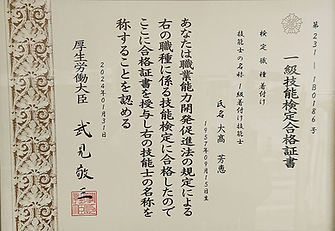 第231-1B0186号
一級技能検定合格証書
検定職種 着付け
技能士の名称 1級着付け技能士
氏名 大高 芳恵
1957年09月15日生
あなたは職業能力開発促進法の規定による
右の職種に係る技能検定に合格したので
ここに合格証書を授与し右の技能士の名称を
称することを認める
2024年01月31日
厚生労働大臣 武見敬三